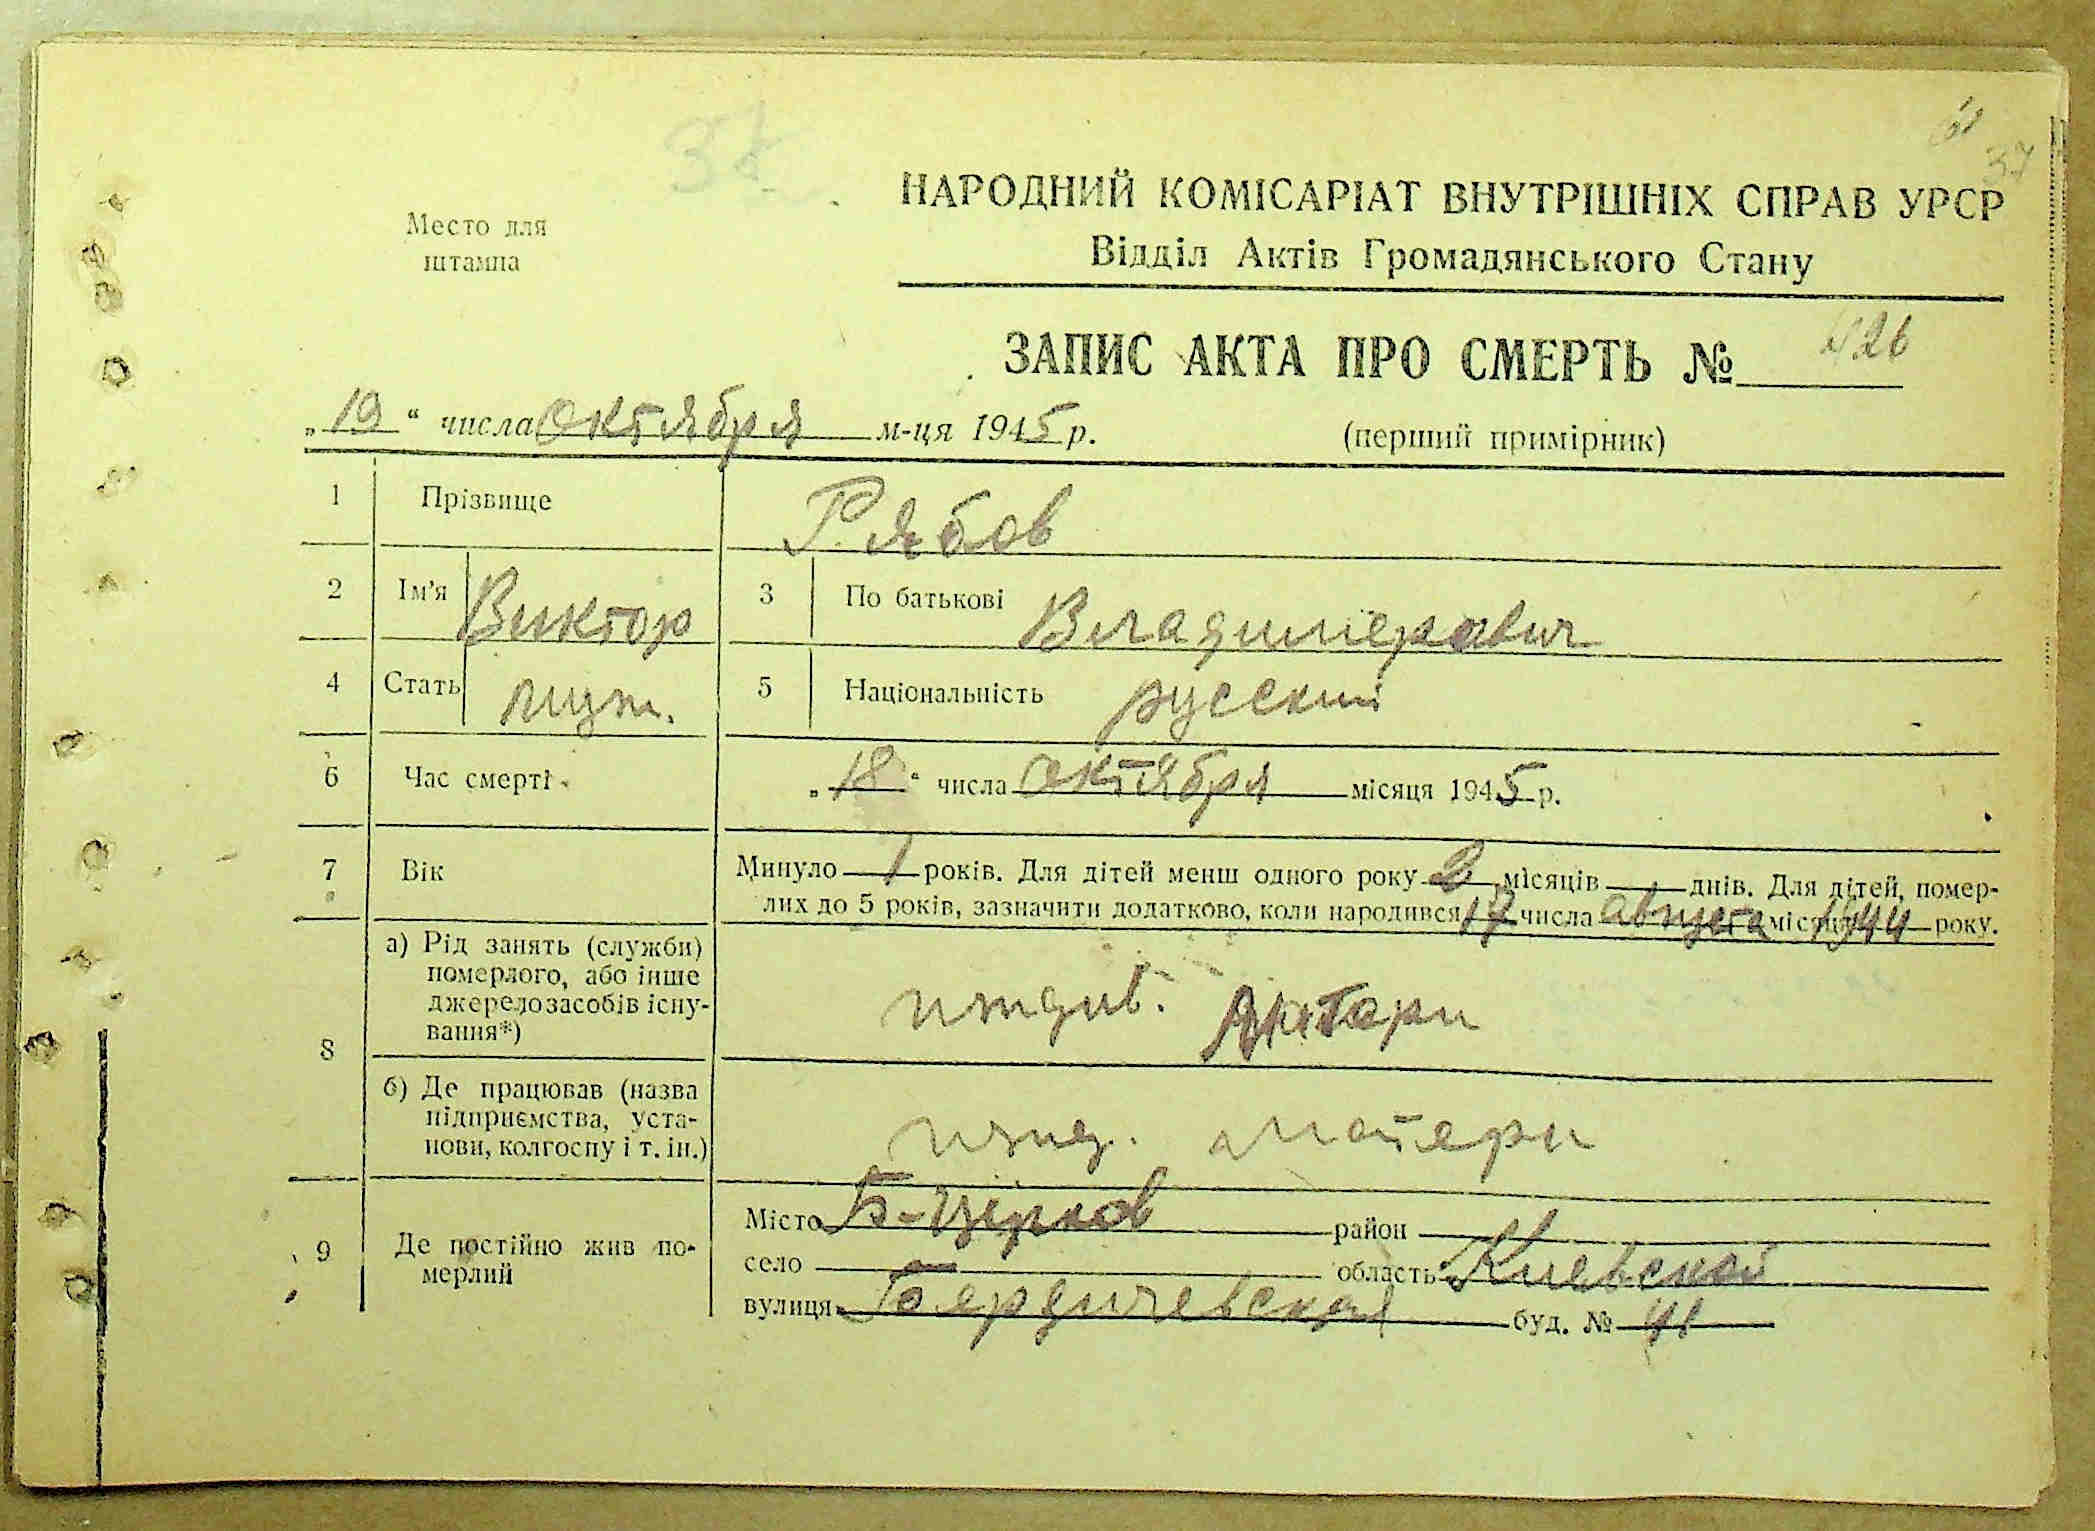 37
37
НАРОДНИЙ КОМІСАРІАТ ВНУТРІШНІХ СПРАВ УРСР
Место для штампа
Відділ Актів Громадянського Стану
ЗАПИС АКТА ПРО СМЕРТЬ № 426
„19“ числа Октября м-ця 1945 р. (перший примірник)
1 Прізвище Рябов
2 Ім'я Виктор 3 По батькові Владимирович
4 Стать муж. 5 Національність русский
6 Час смерті „18“ числа Октября місяця 1945 р.
7 Вік Минуло 1 років. Для дітей менш одного року 2 місяців днів. Для дітей, помер-
лих до 5 років, зазначити додатково, коли народився 17 числа августа місяця 1944 року.
8 а) Рід занять (служби)
померлого, або інше
джерело засобів існу-
вання*)
иждив. матери
б) Де працював (назва
підприємства, уста-
нови, колгоспу і т. ін.)
матери
9 Де постійно жив по-
мерлий
Місто Б-Церков район
село область Киевской
вулиця Бердичевская буд. № 41